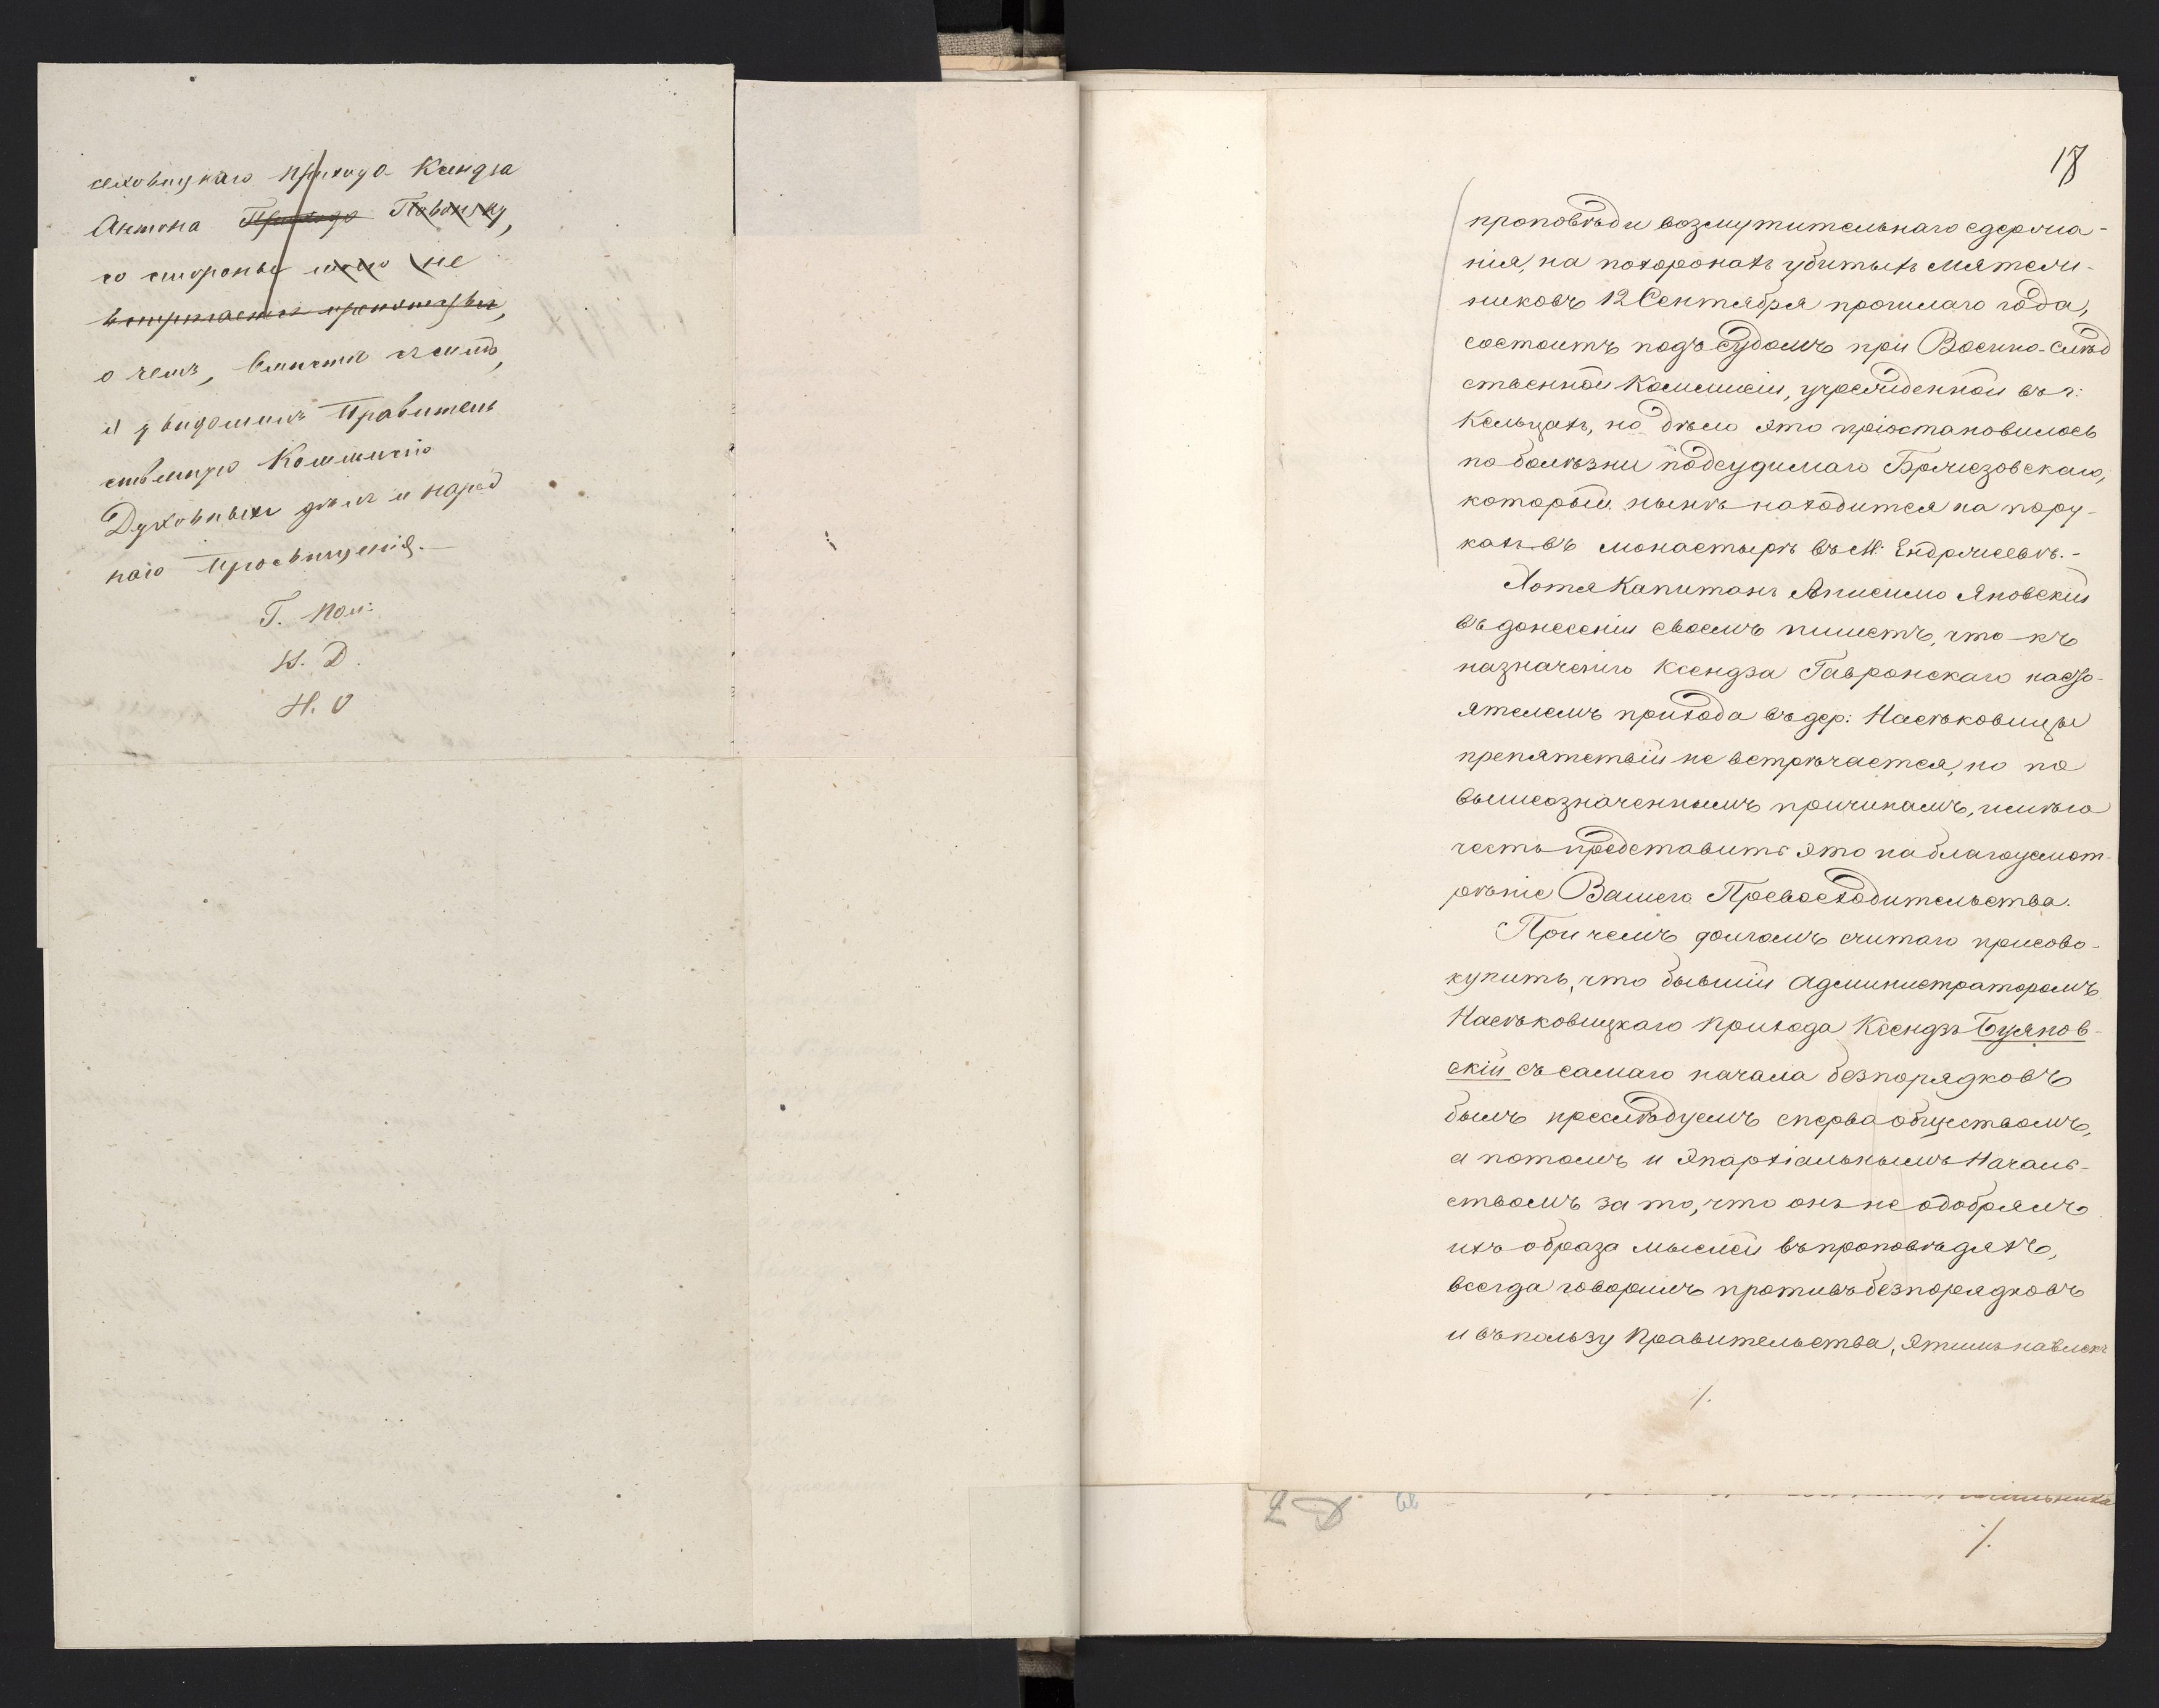 прихода Ксендза
Антона
со стороны не
о чемъ, вместе съ симъ,
и увидомилъ Правитель
ственную Коммисію
Духовныхъ дѣлъ и народ
наго Просвѣщенія.—
Г. Нач:
Н. Д.
Н. О
18
проповѣди возмутительнаго содержа-
нія, на похоронахъ убитыхъ мятеж-
никовъ 12 Сентября прошлаго года,
состоитъ подъ судомъ при Военно-слѣд
ственной Коммисіи, учрежденной въ г:
Кельцахъ, но дѣло это пріостановилось
по болѣзни подсудимаго Бржезовскаго,
который нынѣ находится на пору-
кахъ въ монастырѣ въ М: Ендржеевѣ.-
Хотя Капитанъ Анисимо Яновскій
въ донесеніи своемъ пишетъ, что къ
назначенію Ксендза Гавронскаго насто-
ятелемъ прихода въ дер: Насѣховицы
препятствій не встрѣчается, но по
вышеозначеннымъ причинамъ, имѣю
честь представить это на благоусмот-
рѣніе Вашего Превосходительства.
При чемъ долгомъ считаю присово-
купить, что бывшій Администраторомъ
Насѣховицкаго прихода Ксендзъ Буянов-
скій съ самаго начала безпорядковъ
былъ преслѣдуемъ сперва обществомъ,
а потомъ и Эпархіальнымъ Началь-
ствомъ за то, что онъ не одобрялъ
ихъ образа мыслей въ проповѣдяхъ,
всегда говорилъ противъ безпорядковъ
и въ пользу Правительства, этимъ навлекъ
/.
/.